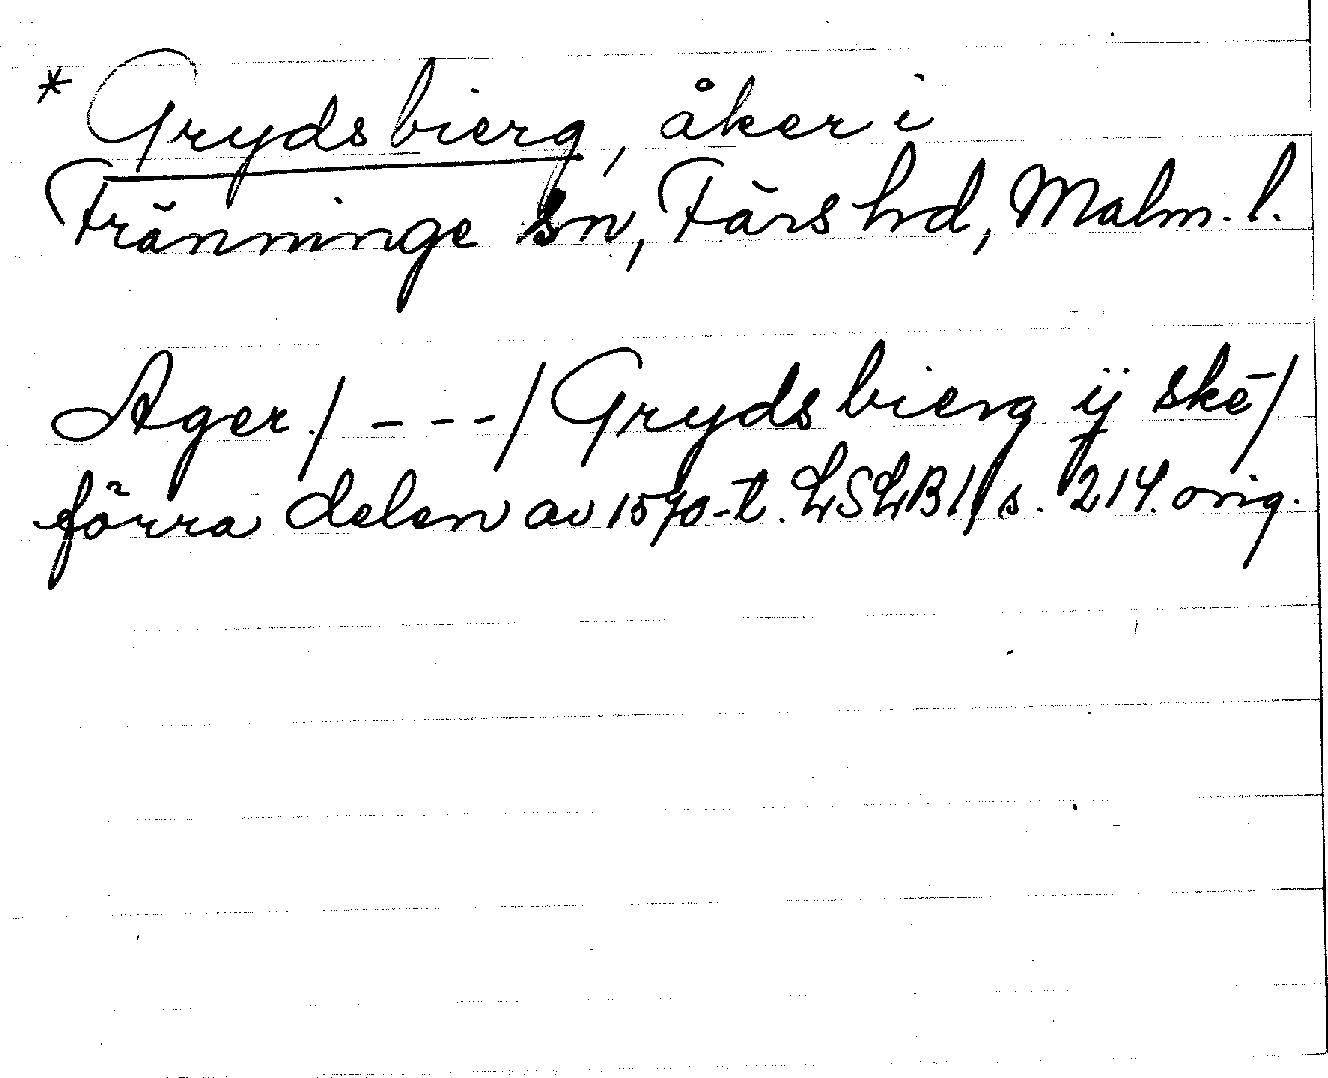 * Grydsbierg, åker i
Fränninge sn, Färs hd, Malm. l.
Ager / - - - / Grydsbierg ij ske /
förra delen av 1570-t. LSLB 1, s. 214. orig.